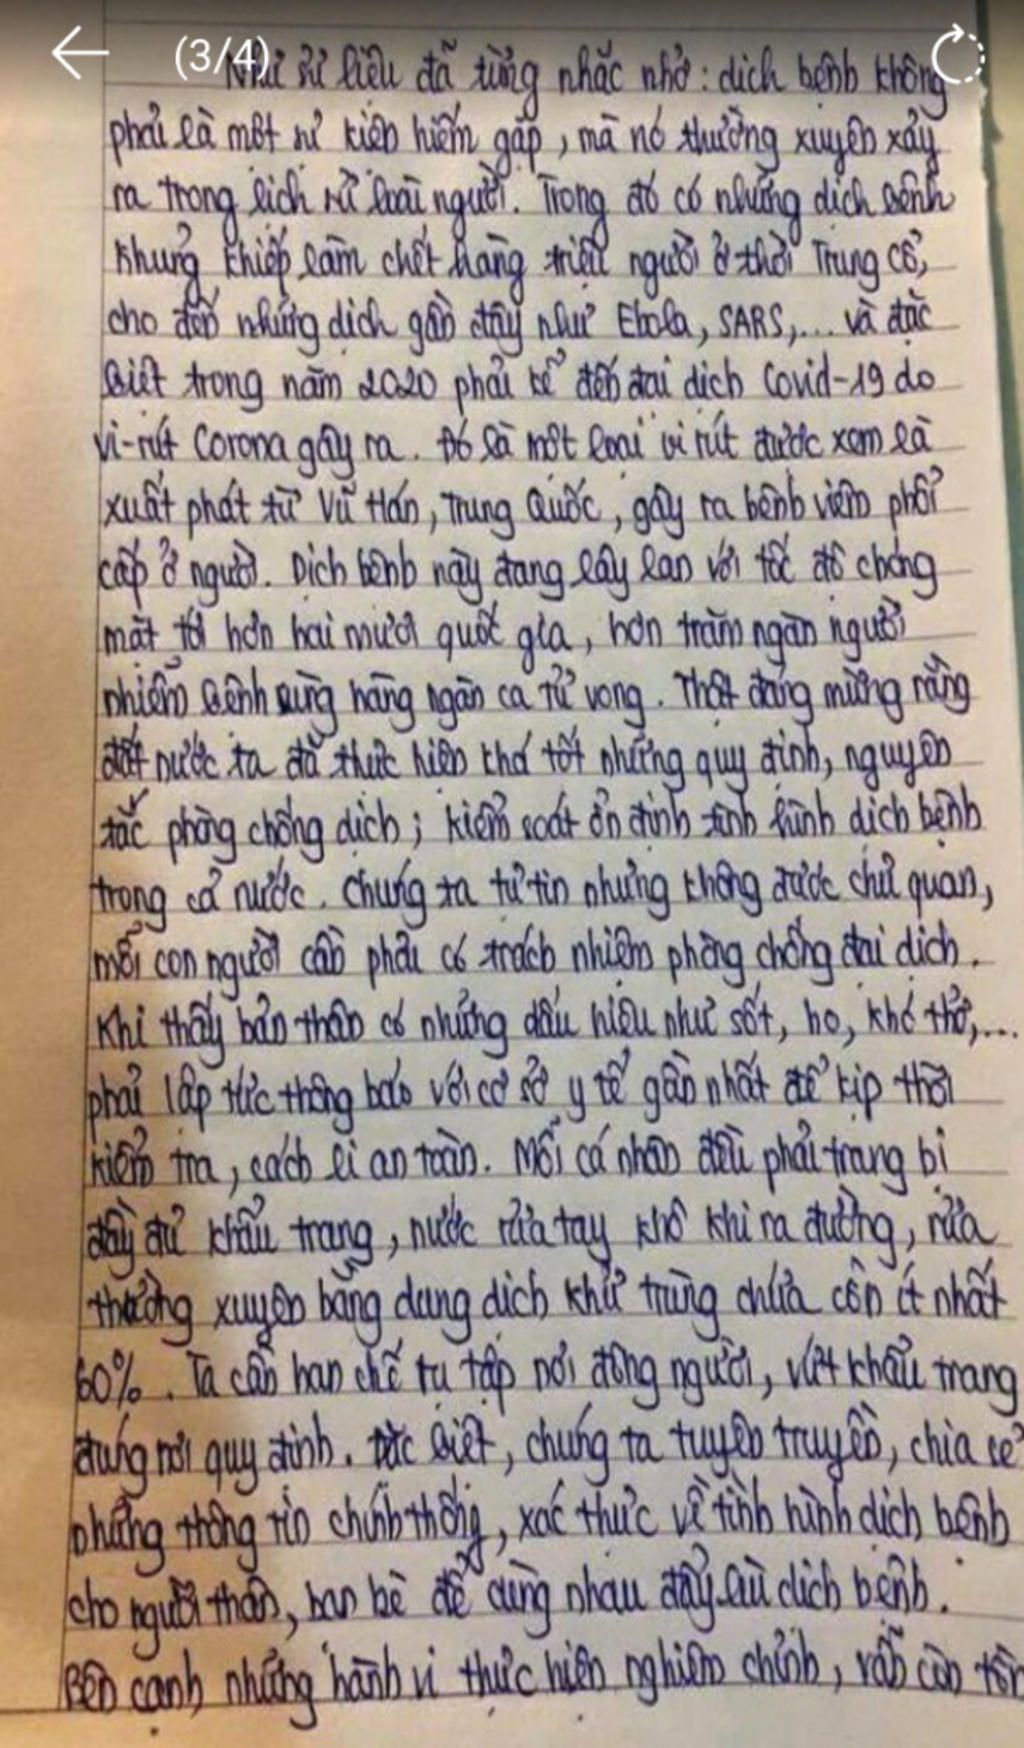 (3/4)
Như sử liệu đã từng nhắc nhở: dịch bệnh không
phải là một sự kiện hiếm gặp, mà nó thường xuyên xảy
ra trong lịch sử loài người. Trong đó có những dịch bệnh
khủng khiếp làm chết hàng triệu người ở thời Trung Cổ,
cho đến những dịch gần đây như Ebola, SARS,... và đặc
biệt trong năm 2020 phải kể đến đại dịch Covid-19 do
vi-rút Corona gây ra. Đó là một loại vi rút được xem là
xuất phát từ Vũ Hán, Trung Quốc, gây ra bệnh viêm phổi
cấp ở người. Dịch bệnh này đang lây lan với tốc độ chóng
mặt tới hơn hai mươi quốc gia, hơn trăm ngàn người
nhiễm bệnh cùng hàng ngàn ca tử vong. Thật đáng mừng rằng
đất nước ta đã thực hiện khá tốt những quy định, nguyên
tắc phòng chống dịch; kiểm soát ổn định tình hình dịch bệnh
trong cả nước. Chúng ta tự tin nhưng không được chủ quan,
mỗi con người cần phải có trách nhiệm phòng chống đại dịch.
Khi thấy bản thân có những dấu hiệu như sốt, ho, khó thở,...
phải lập tức thông báo với cơ sở y tế gần nhất để kịp thời
kiểm tra, cách li an toàn. Mỗi cá nhân đều phải trang bị
đầy đủ khẩu trang, nước rửa tay khô khi ra đường, rửa
thường xuyên bằng dung dịch khử trùng chứa cồn ít nhất
60%. Ta cần hạn chế tụ tập nơi đông người, vứt khẩu trang
đúng nơi quy định. Đặc biệt, chúng ta tuyên truyền, chia sẻ
những thông tin chính thống, xác thực về tình hình dịch bệnh
cho người thân, bạn bè để cùng nhau đẩy lùi dịch bệnh.
Bên cạnh những hành vi thực hiện nghiêm chỉnh, vẫn còn tồn